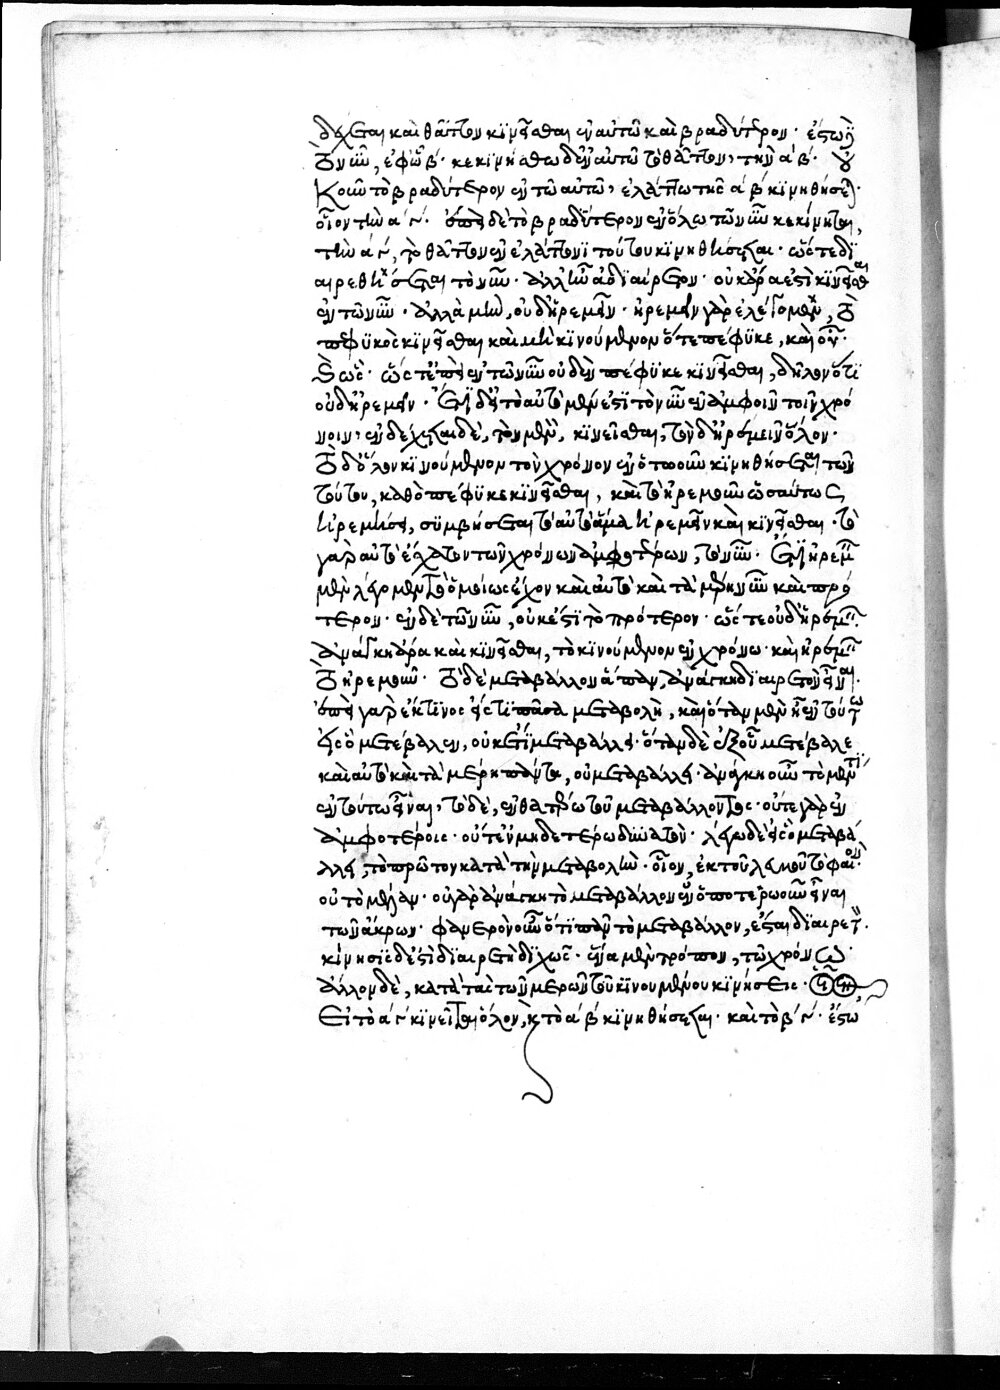 δέχεται καὶ θᾶττον κινεῖσθαι ἐν αὐτῶ καὶ βραδύτερον· ἔστω δὴ
τὸ νῦν, ἐφ' ὧ ν̄· κεκινήσθω δ' ἐν αὐτῶ τὸ θᾶττον, τὴν α β·
οὐκοῦν τὸ βραδύτερον ἐν τῶ αὐτῶ, ἐλάττω τῆς α β κινηθήσεται·
οἷον τὴν α γ· ἐπεὶ δὲ τὸ βραδύτερον ἐν ὅλω τῶ νῦν κεκίνηται,
τὴν α γ, τὸ θᾶττον ἐν ἐλάττονι τούτου κινηθήσεται· ὥστε δι
αιρεθήσεται τὸ νῦν· ἀλλ' ἦν ἀδιαίρετον· οὐκ ἄρα ἐστὶ κινεῖσθαι
ἐν τῶ νῦν· ἀλλὰ μὴν, οὐδ' ἠρεμεῖν· ἠρεμεῖν γὰρ ἐλέγομεν, τὸ
πεφυκὸς κινεῖσθαι καὶ μὴ κινούμενον ὅτε πέφυκε, καὶ οὗ·
καὶ ὥς· ὥστ' ἐπεὶ ἐν τῶ νῦν οὐδὲν πέφυκε κινεῖσθαι, δῆλον ὅτι
οὐδ' ἠρεμεῖν· ἔτι δ' εἰ τὸ αὐτὸ μέν ἐστι τὸ νῦν ἐν ἀμφοῖν τοῖν χρό
νοιν, ἐνδέχεται δὲ, τὸν μὲν, κινεῖσθαι, τὸν δ' ἠρεμεῖν ὅλον·
τὸ δ' ὅλον κινούμενον τὸν χρόνον ἐν ὁτωοῦν κινηθήσεται τῶν
τούτου, καθὸ πέφυκε κινεῖσθαι, καὶ τὸ ἠρεμοῦν ὡσαύτως
ἠρεμήσει, συμβήσεται τὸ αὐτὸ ἅμα ἠρεμεῖν καὶ κινεῖσθαι· τὸ
γὰρ αὐτὸ ἔσχατον τῶν χρόνων ἀμφοτέρων, τὸ νῦν· ἔτι ἠρεμεῖν
μὲν λέγομεν τὸ ὁμοίως ἔχον καὶ αὐτὸ καὶ τὰ μέρη νῦν καὶ πρό
τερον· ἐν δὲ τῶ νῦν, οὐκ ἔστι τὸ πρότερον· ὥστε οὐδ' ἠρεμεῖν·
ἀνάγκη ἄρα καὶ κινεῖσθαι, τὸ κινούμενον ἐν χρόνω· καὶ ἠρεμεῖν
τὸ ἠρεμοῦν· τὸ δὲ μεταβάλλον ἅπαν, ἀνάγκη διαιρετὸν εἶναι·
ἐπεὶ γὰρ ἔκ τινος εἴς τι πᾶσα μεταβολὴ, καὶ ὅταν μὲν ἦ ἐν τούτω
εἰς ὃ μετέβαλεν, οὐκέτι μεταβάλλει· ὅταν δὲ ἐξ οὗ μετέβαλε
καὶ αὐτὸ καὶ τὰ μέρη πάντα, οὐ μεταβάλλει· ἀνάγκη οὖν τὸ μέν τι
ἐν τούτω εἶναι, τὸ δὲ, ἐν θατέρω τοῦ μεταβάλλοντος· οὔτε γὰρ ἐν
ἀμφοτέροις· οὔτ' ἐν μηδετέρω δυνατόν· λέγω δὲ εἰς ὃ μεταβά
λλει, τὸ πρῶτον κατὰ τὴν μεταβολὴν· οἷον, ἐκ τοῦ λευκοῦ τὸ φαιὸν·
οὐ τὸ μέλαν· οὐ γὰρ ἀνάγκη τὸ μεταβάλλον ἐν ὁποτερωοῦν εἶναι
τῶν ἄκρων· φανερὸν οὖν ὅτι πᾶν τὸ μεταβάλλον, ἔσται διαιρετόν·
κίνησις δέ ἐστι διαιρετὴ διχῶς· ἕνα μὲν τρόπον, τῶ χρόνω·
ἄλλον δὲ, κατὰ τὰς τῶν μερῶν τοῦ κινουμένου κινήσεις·
Εἰ τὸ α γ κινεῖται ὅλον, κ τὸ α β κινηθήσεται· καὶ τὸ β γ· ἔστω